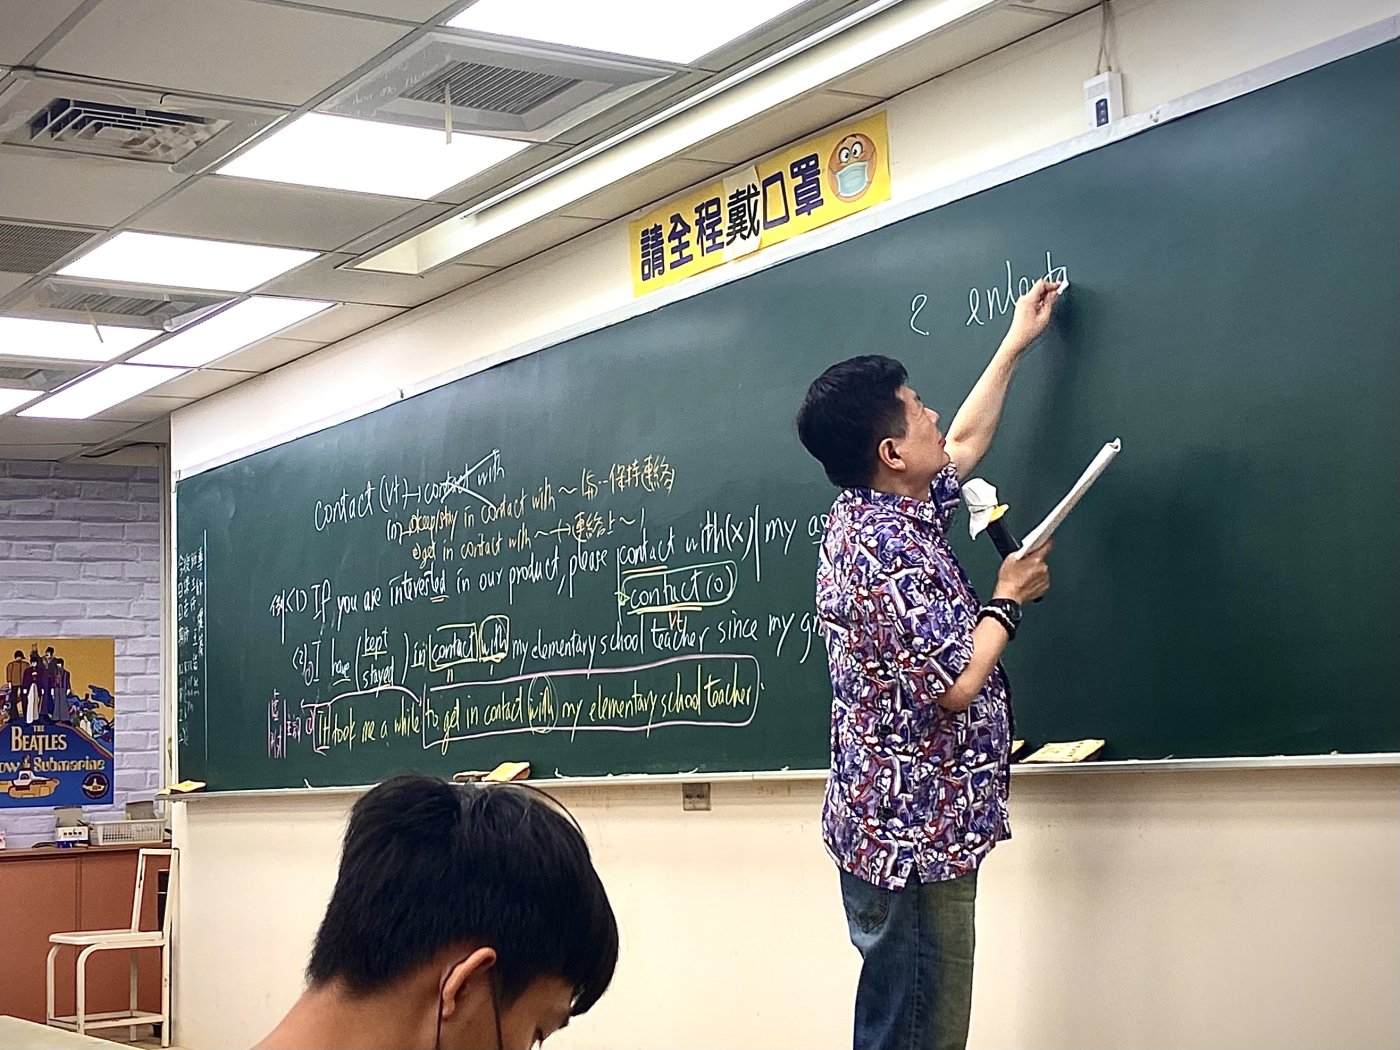 請全程戴口罩
2 enterta
contact (vt) → contact with
(n) → keep/stay in contact with ~ 與...保持連絡
get in contact with ~ → 連絡上~
例<1> If you are interested in our product, please contact with(x) my
contact (o)
vt
(2) ① I have (kept stayed) in contact with my elementary school teacher since my
n
② It took me a while to get in contact with my elementary school teacher.
THE
BEATLES
Submarine